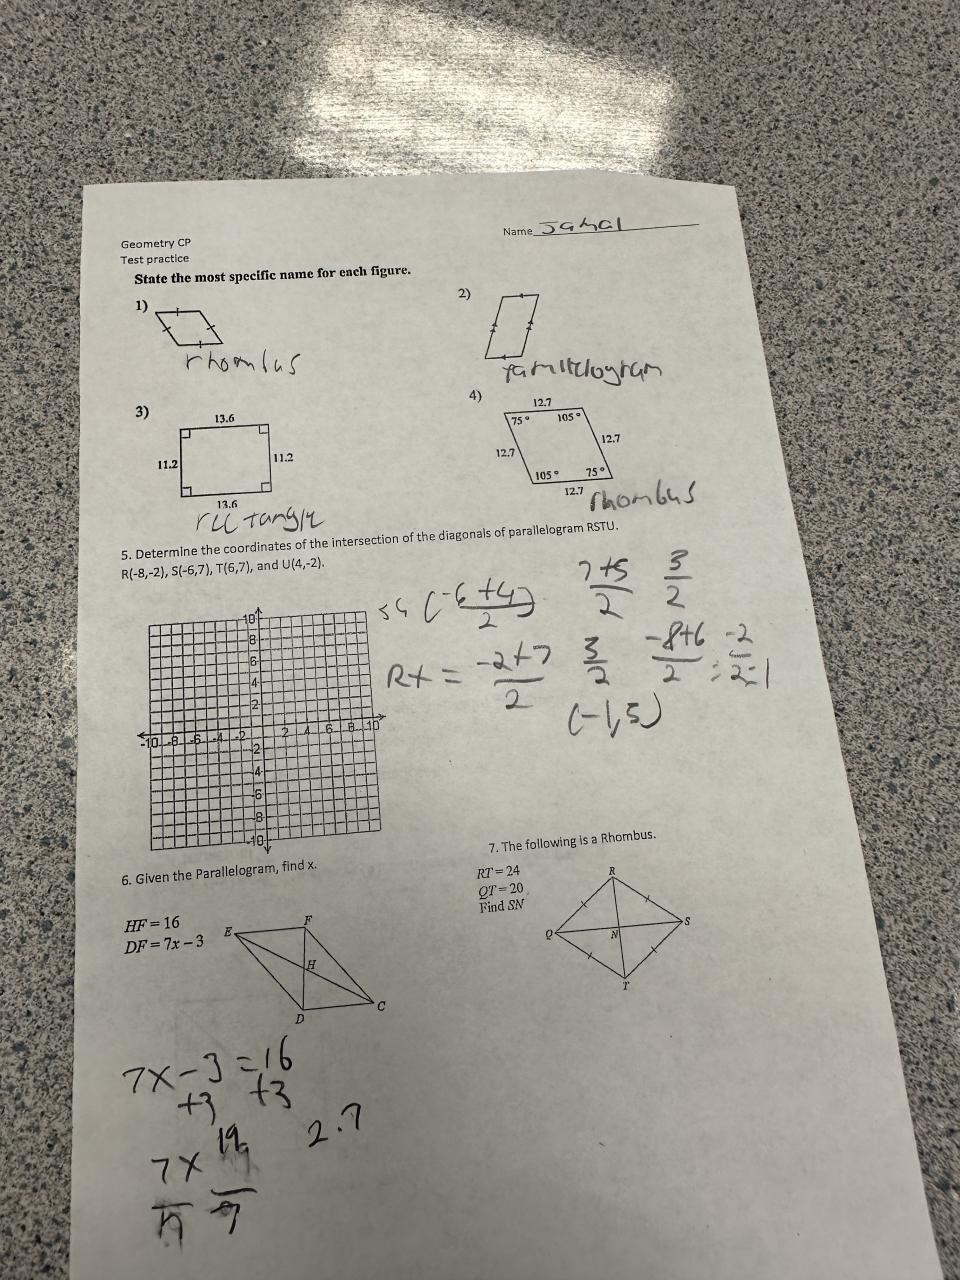 Geometry CP
Test practice
Name Jamal
State the most specific name for each figure.
1)
2)
rhombus
3)
4)
13.6
11.2
11.2
13.6
rectangle
12.7
75°
105°
12.7
12.7
105°
75°
12.7
rhombus
5. Determine the coordinates of the intersection of the diagonals of parallelogram RSTU.
R(-8,-2), S(-6,7), T(6,7), and U(4,-2).
(-6+4)/2
7+5/2
3/2
Rt = -2+7/2
3/2
-8+6/2 = -2/2 = 1
(-1,5)
10
8
6
4
2
-10 -8 -6 -4 -2
2 4 6 8 10
-2
-4
-6
-8
-10
6. Given the Parallelogram, find x.
HF = 16
DF = 7x – 3
E
F
H
D
C
7x - 3 = 16
+3 +3
7x 19
7
2.7
7. The following is a Rhombus.
RT = 24
QT = 20
Find SN
R
Q
N
S
T